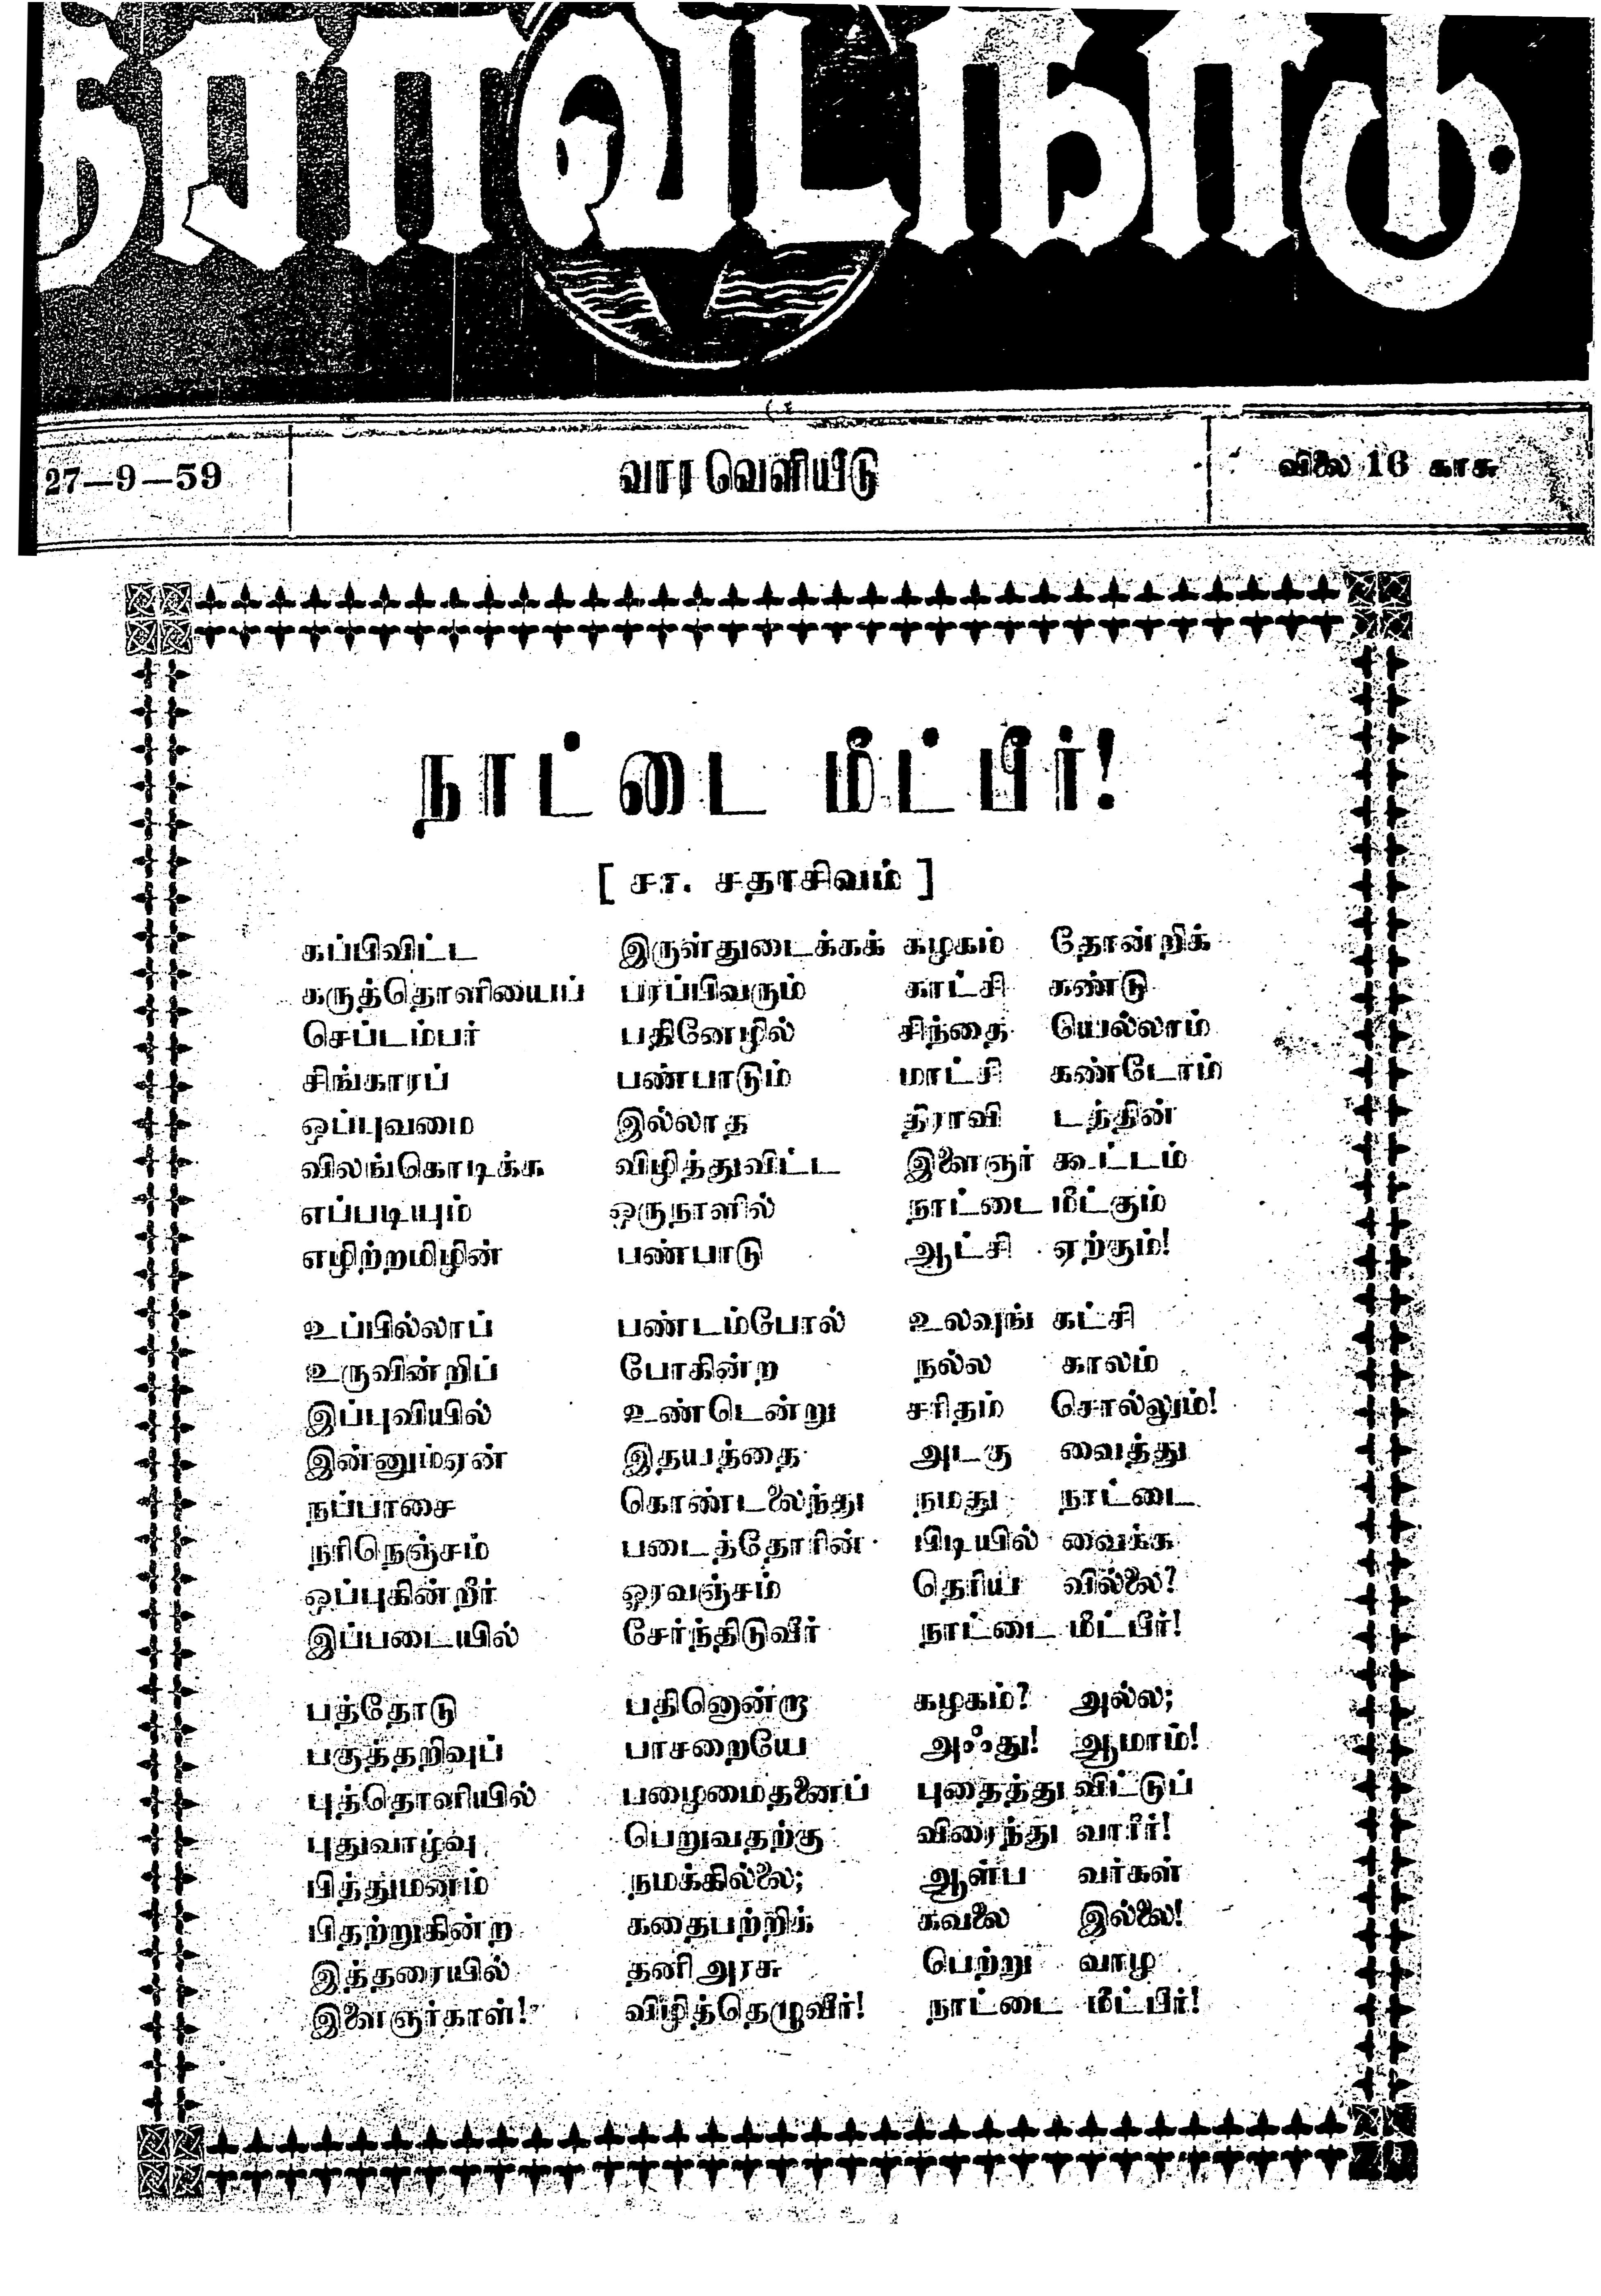 திராவிடநாடு
27—9—59 வார வெளியீடு விலை 16 காசு
நாட்டை மீட்பீர்!
[ சா. சதாசிவம் ]
கப்பிவிட்ட இருள்துடைக்கக் கழகம் தோன்றிக்
கருத்தொளியைப் பரப்பிவரும் காட்சி கண்டு
செப்டம்பர் பதினேழில் சிந்தை யெல்லாம்
சிங்காரப் பண்பாடும் மாட்சி கண்டோம்
ஒப்புவமை இல்லாத திராவி டத்தின்
விலங்கொடிக்க விழித்துவிட்ட இளைஞர் கூட்டம்
எப்படியும் ஒருநாளில் நாட்டை மீட்கும்
எழிற்றமிழின் பண்பாடு ஆட்சி ஏற்கும்!
உப்பில்லாப் பண்டம்போல் உலவுங் கட்சி
உருவின்றிப் போகின்ற நல்ல காலம்
இப்புவியில் உண்டென்று சரிதம் சொல்லும்!
இன்னும்ஏன் இதயத்தை அடகு வைத்து
நப்பாசை கொண்டலைந்து நமது நாட்டை
நரிநெஞ்சம் படைத்தோரின் பிடியில் வைக்க
ஒப்புகின்றீர் ஓரவஞ்சம் தெரிய வில்லை?
இப்படையில் சேர்ந்திடுவீர் நாட்டை மீட்பீர்!
பத்தோடு பதினொன்றா கழகம்? அல்ல;
பகுத்தறிவுப் பாசறையே அஃது! ஆமாம்!
புத்தொளியில் பழைமைதனைப் புதைத்து விட்டுப்
புதுவாழ்வு பெறுவதற்கு விரைந்து வாரீர்!
பித்துமனம் நமக்கில்லை; ஆள்ப வர்கள்
பிதற்றுகின்ற கதைபற்றிக் கவலை இல்லை!
இத்தரையில் தனி அரசு பெற்று வாழ
இளைஞர்காள்! விழித்தெழுவீர்! நாட்டை மீட்பீர்!